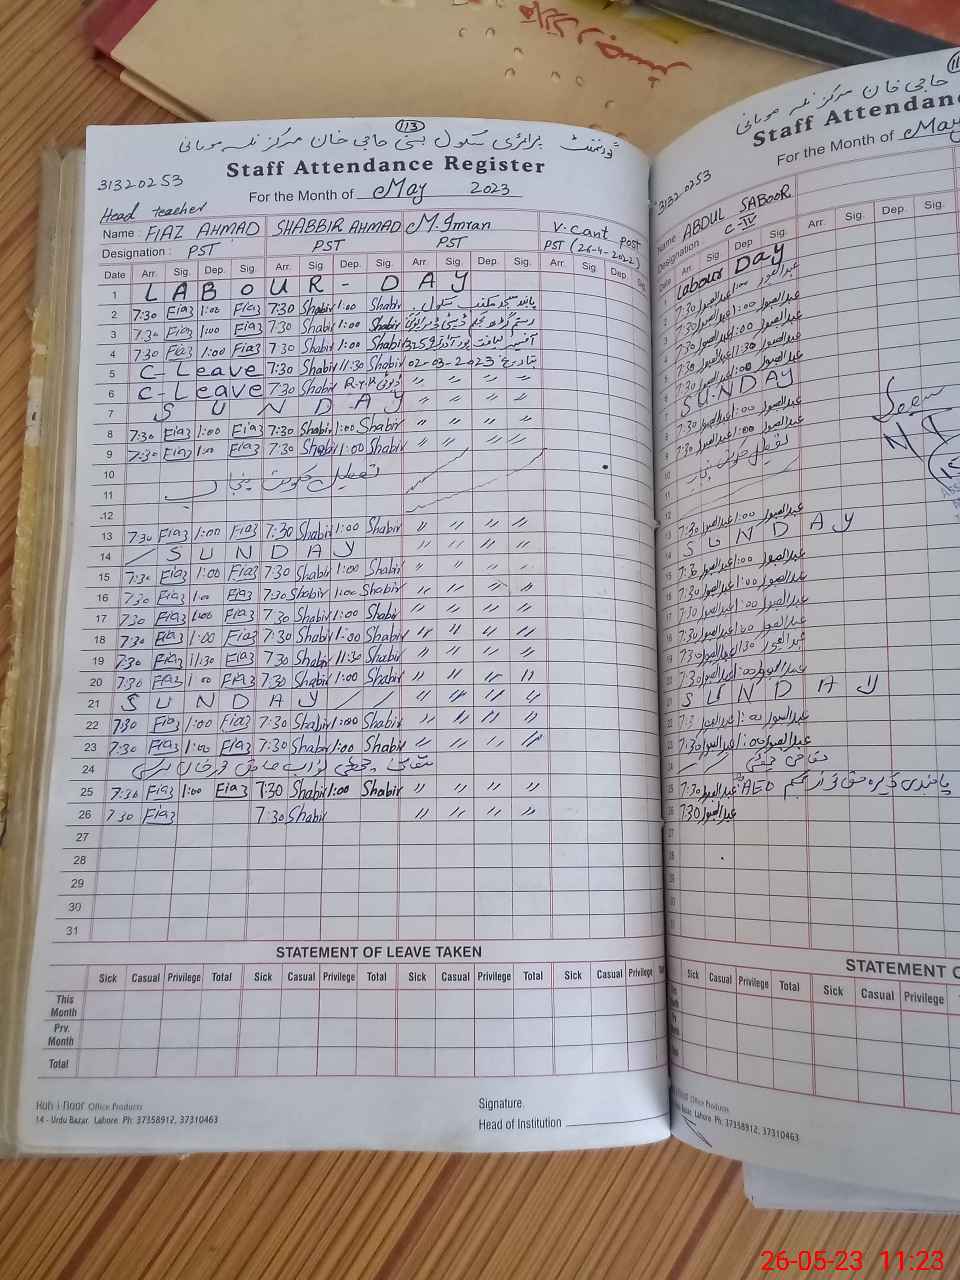 113
گورنمنٹ پرائمری سکول بستی حاجی خان مرکز نلہ موہانی
Staff Attendance Register
31320253
For the Month of May 2023
Head teacher
Name : FIAZ AHMAD SHABBIR AHMAD M. Imran V. Cant post
Designation : PST PST PST PST (26-4-2022)
Date Arr. Sig. Dep. Sig. Arr. Sig. Dep. Sig. Arr. Sig. Dep. Sig. Arr. Sig. Dep. Sig.
1 LABOUR - DAY
2 7:30 Fiaz 1:00 Fiaz 7:30 Shabir 1:00 Shabir
3 7:30 Fiaz 1:00 Fiaz 7:30 Shabir 1:00 Shabir
4 7:30 Fiaz 1:00 Fiaz 7:30 Shabir 1:00 Shabir
5 C- Leave 7:30 Shabir 11:30 Shabir 02-03-2023
6 C- Leave 7:30 Shabir " " " "
7 SUNDAY " " " "
8 7:30 Fiaz 1:00 Fiaz 7:30 Shabir 1:00 Shabir " " " "
9 7:30 Fiaz 1:00 Fiaz 7:30 Shabir 1:00 Shabir " " " "
10 تعطیل حکومت پنجاب
11
12
13 7:30 Fiaz 1:00 Fiaz 7:30 Shabir 1:00 Shabir " " " "
14 SUNDAY " " " "
15 7:30 Fiaz 1:00 Fiaz 7:30 Shabir 1:00 Shabir " " " "
16 7:30 Fiaz 1:00 Fiaz 7:30 Shabir 1:00 Shabir " " " "
17 7:30 Fiaz 1:00 Fiaz 7:30 Shabir 1:00 Shabir " " " "
18 7:30 Fiaz 1:00 Fiaz 7:30 Shabir 1:00 Shabir " " " "
19 7:30 Fiaz 11:30 Fiaz 7:30 Shabir 11:30 Shabir " " " "
20 7:30 Fiaz 1:00 Fiaz 7:30 Shabir 1:00 Shabir " " " "
21 SUNDAY " " " "
22 7:30 Fiaz 1:00 Fiaz 7:30 Shabir 1:00 Shabir " " " "
23 7:30 Fiaz 1:00 Fiaz 7:30 Shabir 1:00 Shabir " " " "
24 مقامی چھٹی
25 7:30 Fiaz 1:00 Fiaz 7:30 Shabir 1:00 Shabir " " " "
26 7:30 Fiaz 7:30 Shabir " " " "
27
28
29
30
31
STATEMENT OF LEAVE TAKEN
Sick Casual Privilege Total Sick Casual Privilege Total Sick Casual Privilege Total Sick Casual Privilege
This Month
Prv. Month
Total
Koh-i-Noor Office Products
14 - Urdu Bazar, Lahore. Ph: 37358912, 37310463
Signature.
Head of Institution
حاجی خان مرکز نلہ موہانی
Staff Attendan
31320253
For the Month of May
Name ABDUL SABOOR
Designation C-IV
Date Arr. Sig. Dep. Sig. Arr. Sig. Dep. Sig.
Labour Day
7:30 عبدالصبور 1:00 عبدالصبور
7:30 عبدالصبور 1:00 عبدالصبور
7:30 عبدالصبور 1:00 عبدالصبور
7:30 عبدالصبور 11:30 عبدالصبور
7:30 عبدالصبور 1:00 عبدالصبور
SUNDAY
7:30 عبدالصبور 1:00 عبدالصبور
7:30 عبدالصبور 1:00 عبدالصبور
تعطیل حکومت پنجاب
7:30 عبدالصبور 1:00 عبدالصبور
SUNDAY
7:30 عبدالصبور 1:00 عبدالصبور
7:30 عبدالصبور 1:00 عبدالصبور
7:30 عبدالصبور 1:00 عبدالصبور
7:30 عبدالصبور 1:00 عبدالصبور
7:30 عبدالصبور 11:30 عبدالصبور
7:30 عبدالصبور 1:00 عبدالصبور
SUNDAY
7:30 عبدالصبور 1:00 عبدالصبور
7:30 عبدالصبور 1:00 عبدالصبور
مقامی چھٹی
7:30 عبدالصبور AEO
7:30 عبدالصبور
Seen
STATEMENT O
Sick Casual Privilege Total Sick Casual Privilege
Office Products
Bazar, Lahore. Ph: 37358912, 37310463
26-05-23 11:23